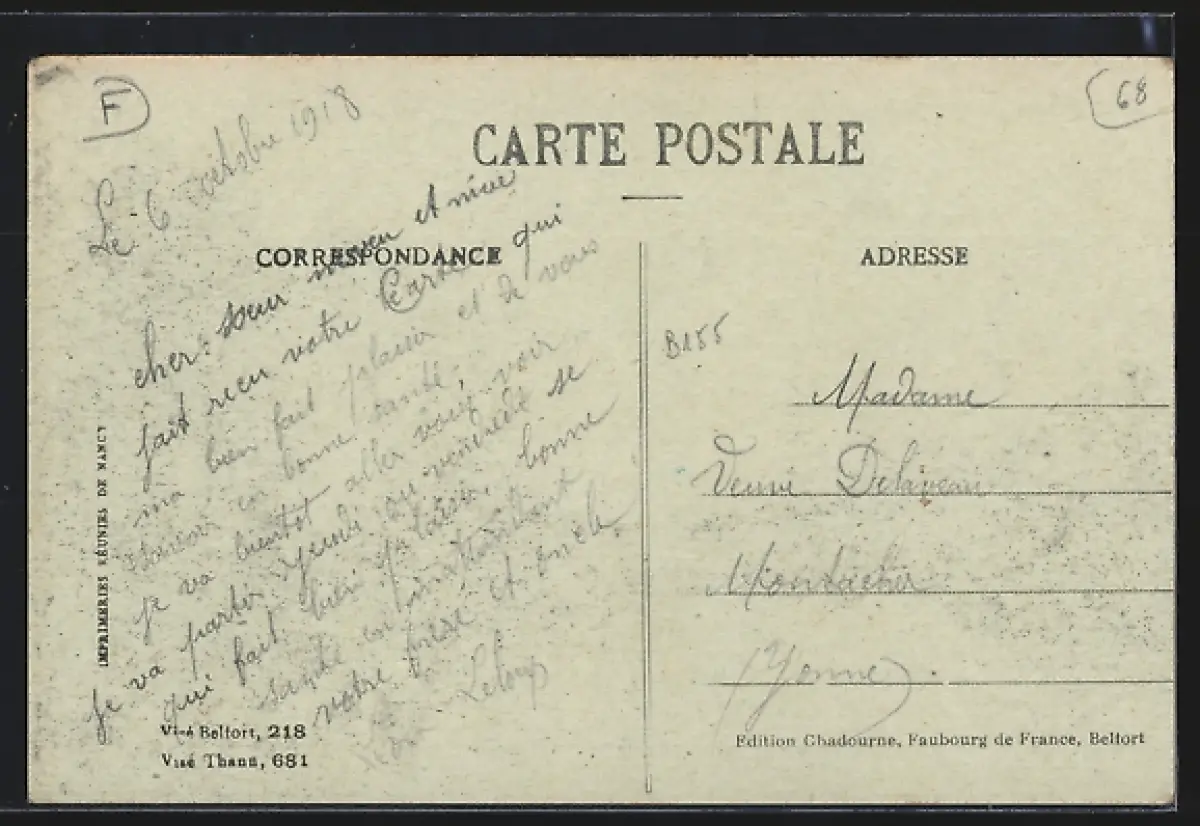 F
68
Le 6 octobre 1918
CARTE POSTALE
CORRESPONDANCE
ADRESSE
cher soeur et niece
jait recu votre Carte qui
ma bien fait plaisir et de vous
en bonne santé.
je va bientot aller vous voir
je va partir jeudi ou vendredi se
qui fait bien plaisir, bonne
santé en mattendant
votre frere et oncle
Leloup
B155
Madame
Delaveau
Montacher
(Yonne)
IMPRIMERIES RÉUNIES DE NANCY
Visé Belfort, 218
Visé Thann, 681
Edition Chadourne, Faubourg de France, Belfort